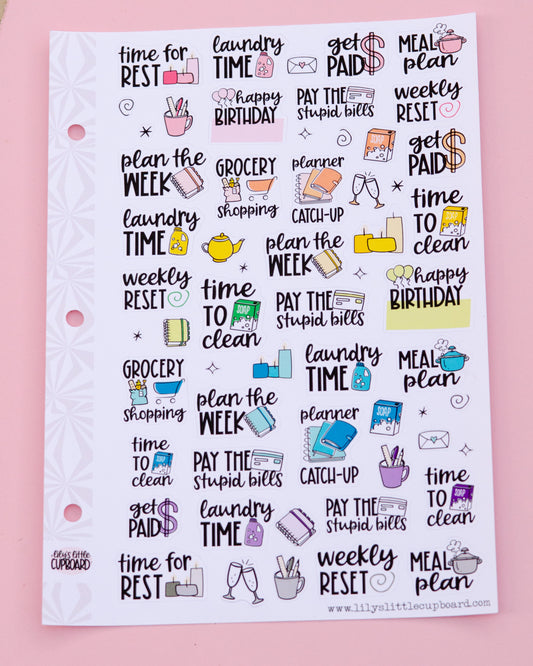 time for
REST
laundry
TIME
get
PAID
MEAL
plan
happy
BIRTHDAY
PAY THE
stupid bills
weekly
RESET
plan the
WEEK
GROCERY
shopping
planner
CATCH-UP
SOAP
get
PAID
laundry
TIME
plan the
WEEK
time
TO
clean
SOAP
weekly
RESET
time
TO
clean
SOAP
PAY THE
stupid bills
happy
BIRTHDAY
GROCERY
shopping
plan the
WEEK
laundry
TIME
MEAL
plan
planner
CATCH-UP
SOAP
time
TO
clean
SOAP
PAY THE
stupid bills
time
TO
clean
SOAP
get
PAID
laundry
TIME
PAY THE
stupid bills
lily's little
CUPBOARD
time for
REST
weekly
RESET
MEAL
plan
www.lilyslittlecupboard.com